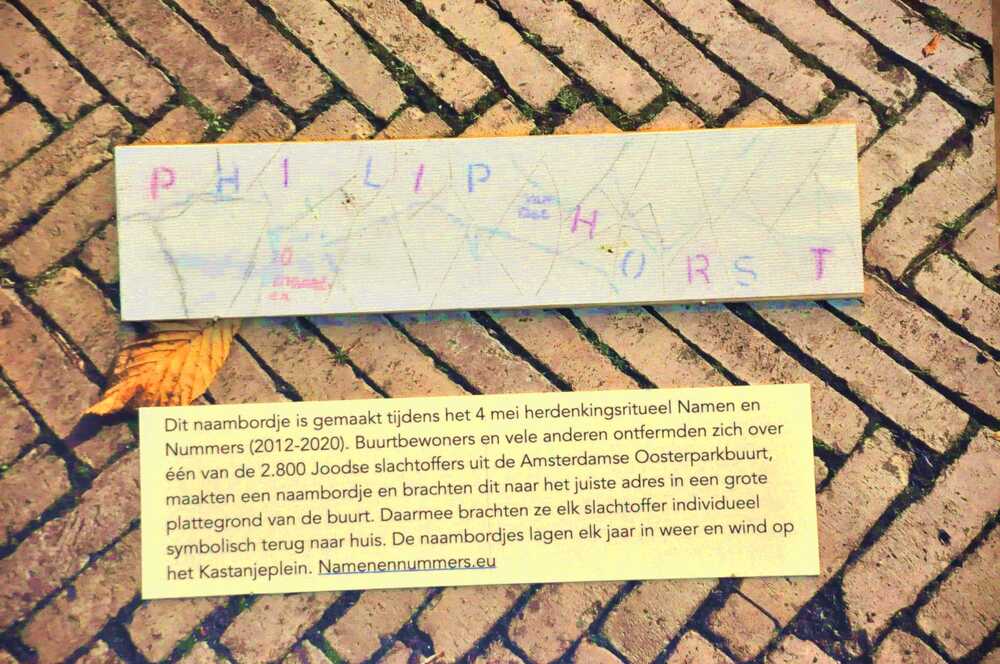 PHILIP
van
der
HORST
0
maand
en
Dit naambordje is gemaakt tijdens het 4 mei herdenkingsritueel Namen en
Nummers (2012-2020). Buurtbewoners en vele anderen ontfermden zich over
één van de 2.800 Joodse slachtoffers uit de Amsterdamse Oosterparkbuurt,
maakten een naambordje en brachten dit naar het juiste adres in een grote
plattegrond van de buurt. Daarmee brachten ze elk slachtoffer individueel
symbolisch terug naar huis. De naambordjes lagen elk jaar in weer en wind op
het Kastanjeplein. Namenennummers.eu